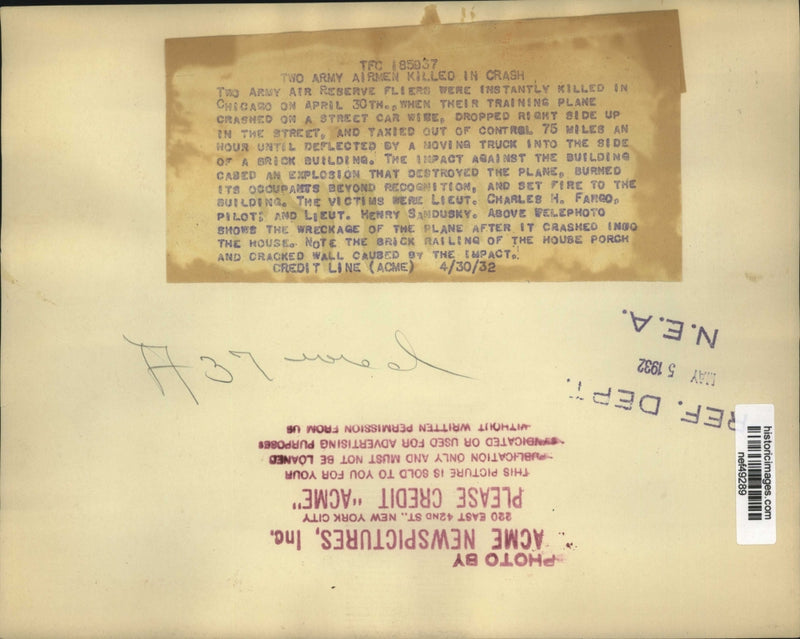 TFC 185937
TWO ARMY AIRMEN KILLED IN CRASH
TWO ARMY AIR RESERVE FLIERS WERE INSTANTLY KILLED IN
CHICAGO ON APRIL 30TH., WHEN THEIR TRAINING PLANE
CRASHED ON A STREET CAR WIRE, DROPPED RIGHT SIDE UP
IN THE STREET, AND TAXIED OUT OF CONTROL 75 MILES AN
HOUR UNTIL DEFLECTED BY A MOVING TRUCK INTO THE SIDE
OF A BRICK BUILDING. THE IMPACT AGAINST THE BUILDING
CASED AN EXPLOSION THAT DESTROYED THE PLANE, BURNED
ITS OCCUPANTS BEYOND RECOGNITION, AND SET FIRE TO THE
BUILDING. THE VICTIMS WERE LIEUT. CHARLES H. FARGO,
PILOT; AND LIEUT. HENRY SANDUSKY. ABOVE TELEPHOTO
SHOWS THE WRECKAGE OF THE PLANE AFTER IT CRASHED INTO
THE HOUSE. NOTE THE BRICK RAILING OF THE HOUSE PORCH
AND CRACKED WALL CAUSED BY THE IMPACT.
CREDIT LINE (ACME) 4/30/32
A 37
N.E.A.
MAY 5 1932
REF. DEPT.
historicimages.com
nef49289
PHOTO BY
ACME NEWSPICTURES, Inc.
220 EAST 42ND ST., NEW YORK CITY
PLEASE CREDIT "ACME"
THIS PICTURE IS SOLD TO YOU FOR YOUR
PUBLICATION ONLY AND MUST NOT BE LOANED
SYNDICATED OR USED FOR ADVERTISING PURPOSES
WITHOUT WRITTEN PERMISSION FROM US